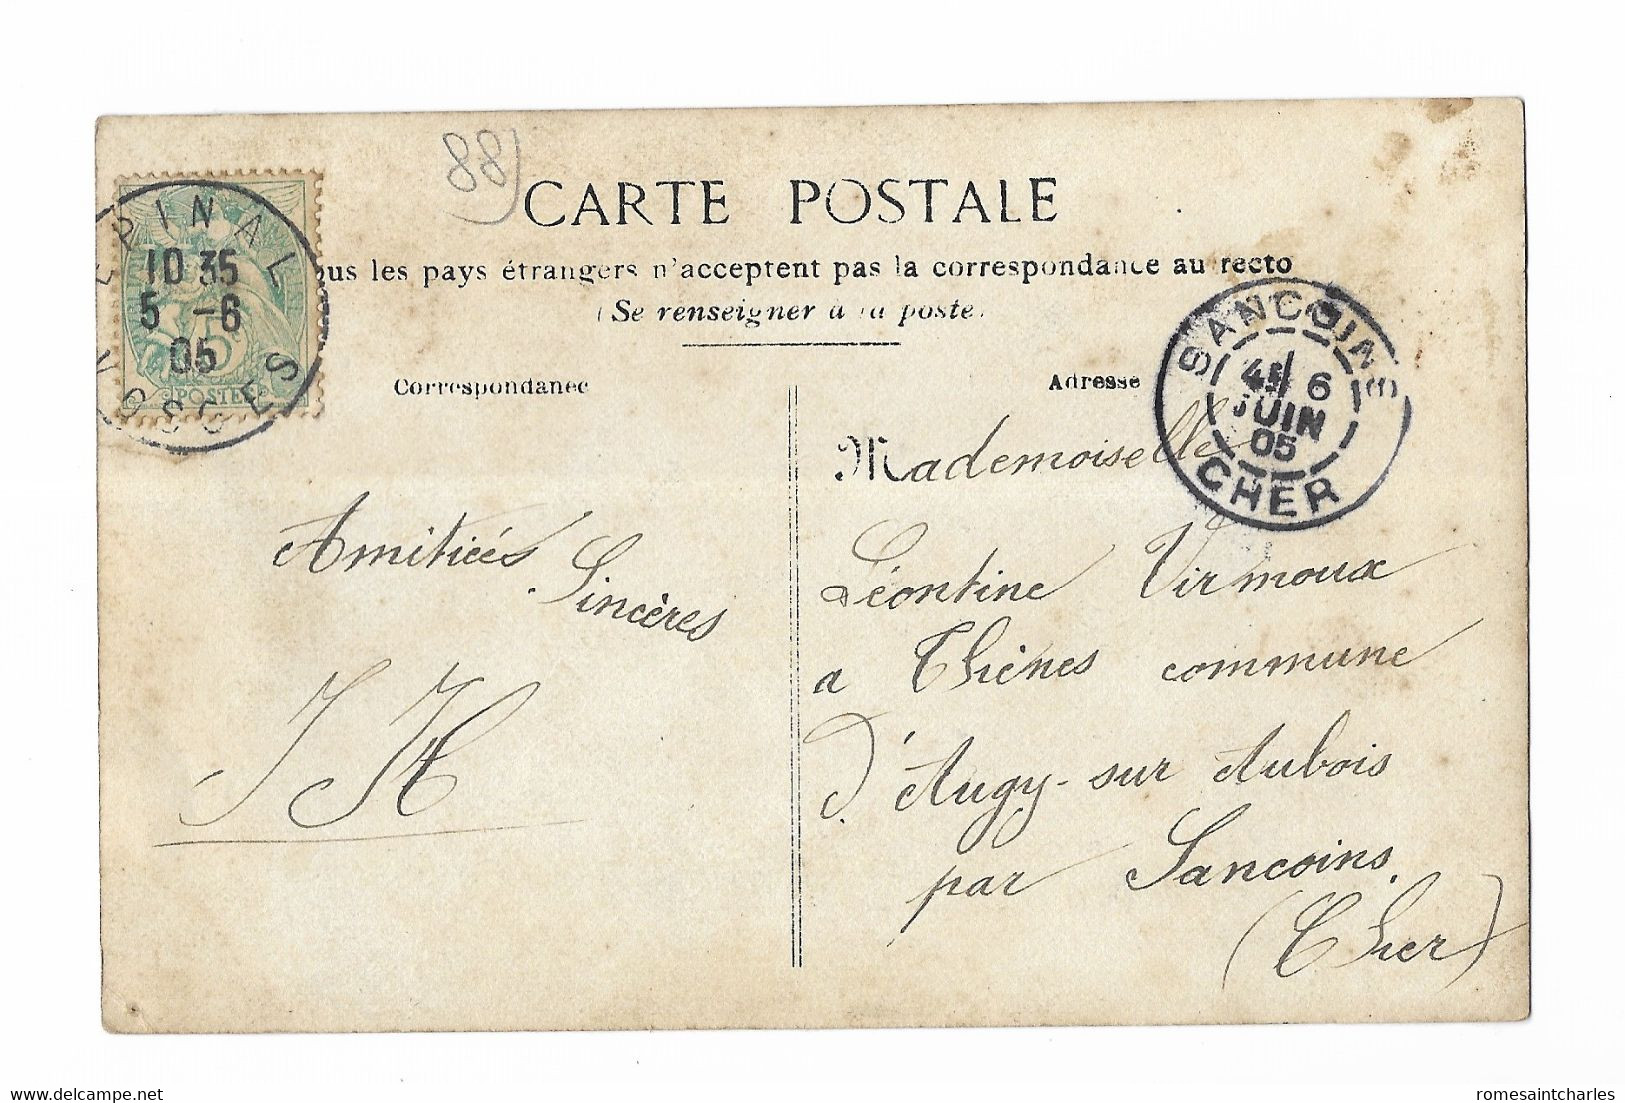 88
CARTE POSTALE
ous les pays étrangers n'acceptent pas la correspondance au recto
(Se renseigner à la poste)
EPINAL
10 35
5 -6
05
VOSGES
5c
POSTES
SANCOINS
4E 6
JUIN
05
CHER
Correspondance
Adresse
Amitiées
Sincères
J H
Mademoiselle
Léontine Virmoux
a Thènes commune
d'Augy-sur Aubois
par Sancoins.
(Cher)
delcampe.net
romesaintcharles